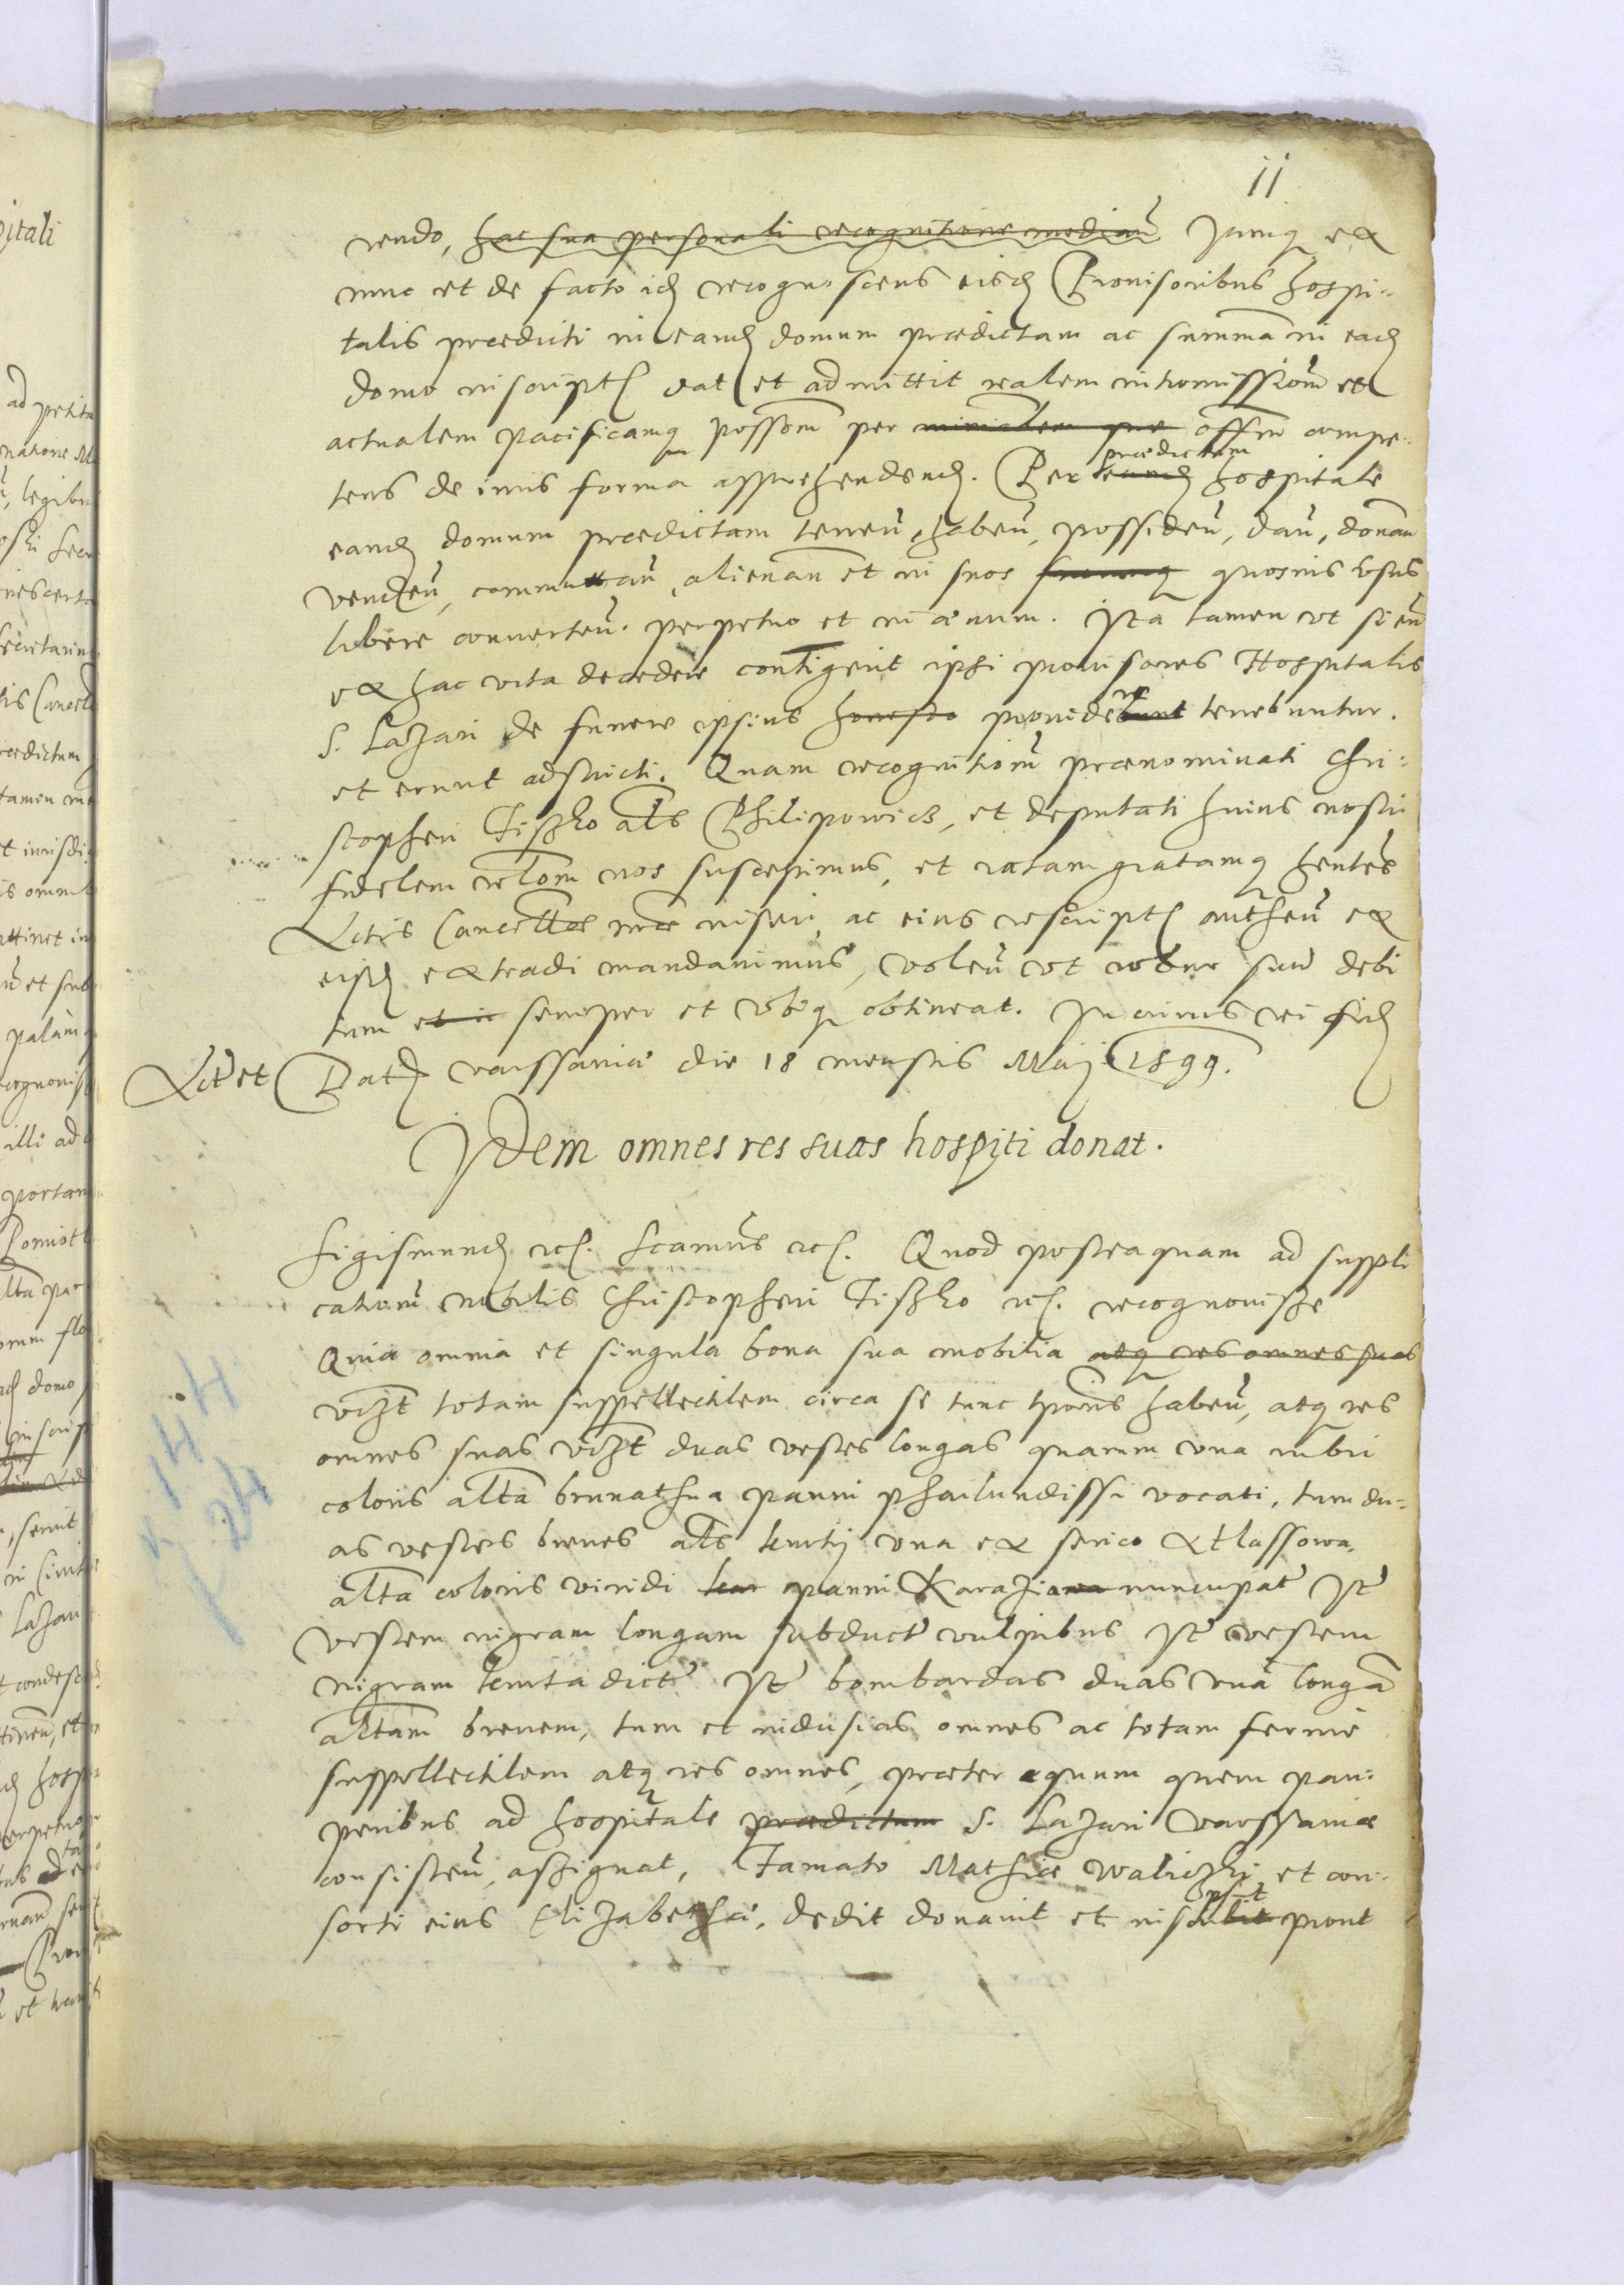 11
rendo, hac sua personali recognitione median̄ Iamq ex
nunc et de facto id recognoscens eisd Prouisoribus hospi-
talis praedicti in eand domum praedictam ac summā in ead
domo inscript dat et admittit realem intromissionē et
actualem pacificamq possom per ministerialem que offm compe-
tens de iuris forma apprehendend. Per eund praedictum hospitale
eand domum praedictam teneñ, habeñ, possideñ, dañ, donañ
vendeñ, commutañ, alienañ et in suos quosuis vsus
libere conuerteñ. perpetuo et in aeuum. Ita tamen vt si eū
ex hac vita decedere contigerit ipsi prouisores Hospitalis
S. Lazari de funere ipsius honesto prouidere tenebuntur.
et erunt adstricti. Quam recognitionē praenominati Chri-
stopheri Tiszko als Philipowicz, et deputati huius nostri
fidelem relom nos suscepimus, et ratam gratamq hentes
Actis Cancellae nrae inseri, ac eius rescript autheñ ex
eisd extradi mandauimus, voleñ vt robur suū debi
tum et in semper et vbiq obtineat. In cuius rei fid
Act et Dat Varssauiae die 18 mensis Maij 1599.
Idem omnes res suas hospiti donat.
Sigismund etc. Seamus etc. Quod posteaquam ad suppli
cationē nobilis Christopheri Tiszko etc. recognouisse
Quia omnia et singula bona sua mobilia atq res omnes suas
vizt totam suppellectilem circa se tunc tporis habeñ, atq res
omnes suas vizt duas vestes longas quarum vna rubri
coloris altā brunathna panni phailundissi vocati, tum du-
as vestes breues als lenity vna ex serico Atlassowa.
altā coloris viridi panni Karaziowa nuncupat It
vestem nigram longam subduct vulpibus It vestem
nigram lenita dict It bombardas duas vnā longā
altam breuem, tum et indusias omnes ac totam ferme
suppellectilem atq res omnes, praeter equum quem pau-
peribus ad hospitale praedictum S. Lazari Varssauiae
consisteñ, assignat, Famato Mathiae Waliczki et con-
sorti eius Elizabethae, dedit donauit et inscripsit prout